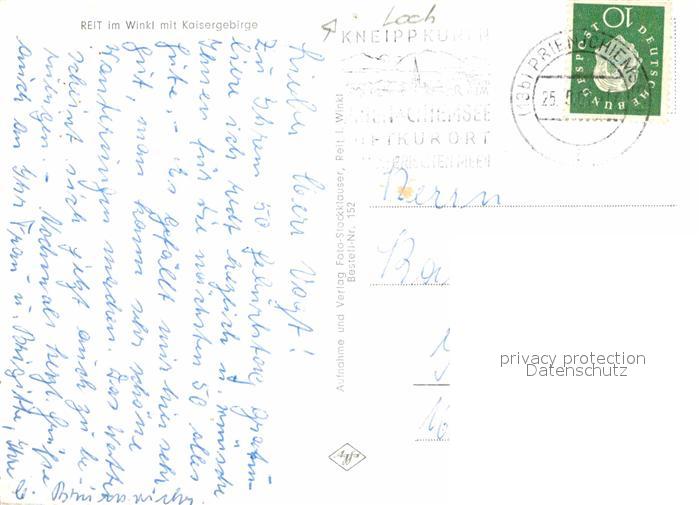 REIT im Winkl mit Kaisergebirge
Lieber Herr Vogt!
Zu Ihrem 50. Geburtstag gratu-
liere ich recht herzlich u. wünsche
Ihnen für die nächsten 50 alles
Gute – Es gefällt mir hier sehr
gut, man kann sehr schöne
Wanderungen machen. Das Wetter
scheint sich jetzt auch zu be-
ruhigen. – Nochmals herzl. Grüße
auch an Ihre Frau u. Brigitte, Ihre
Aufnahme und Verlag Foto-Stockklauser, Reit i. Winkl
Bestell-Nr. 152
Loch
KNEIPPKURORT
LUFTKURORT
(13b) PRIEN (CHIEMSEE)
25.
DEUTSCHE BUNDESPOST
10
Herrn
16
privacy protection
Datenschutz